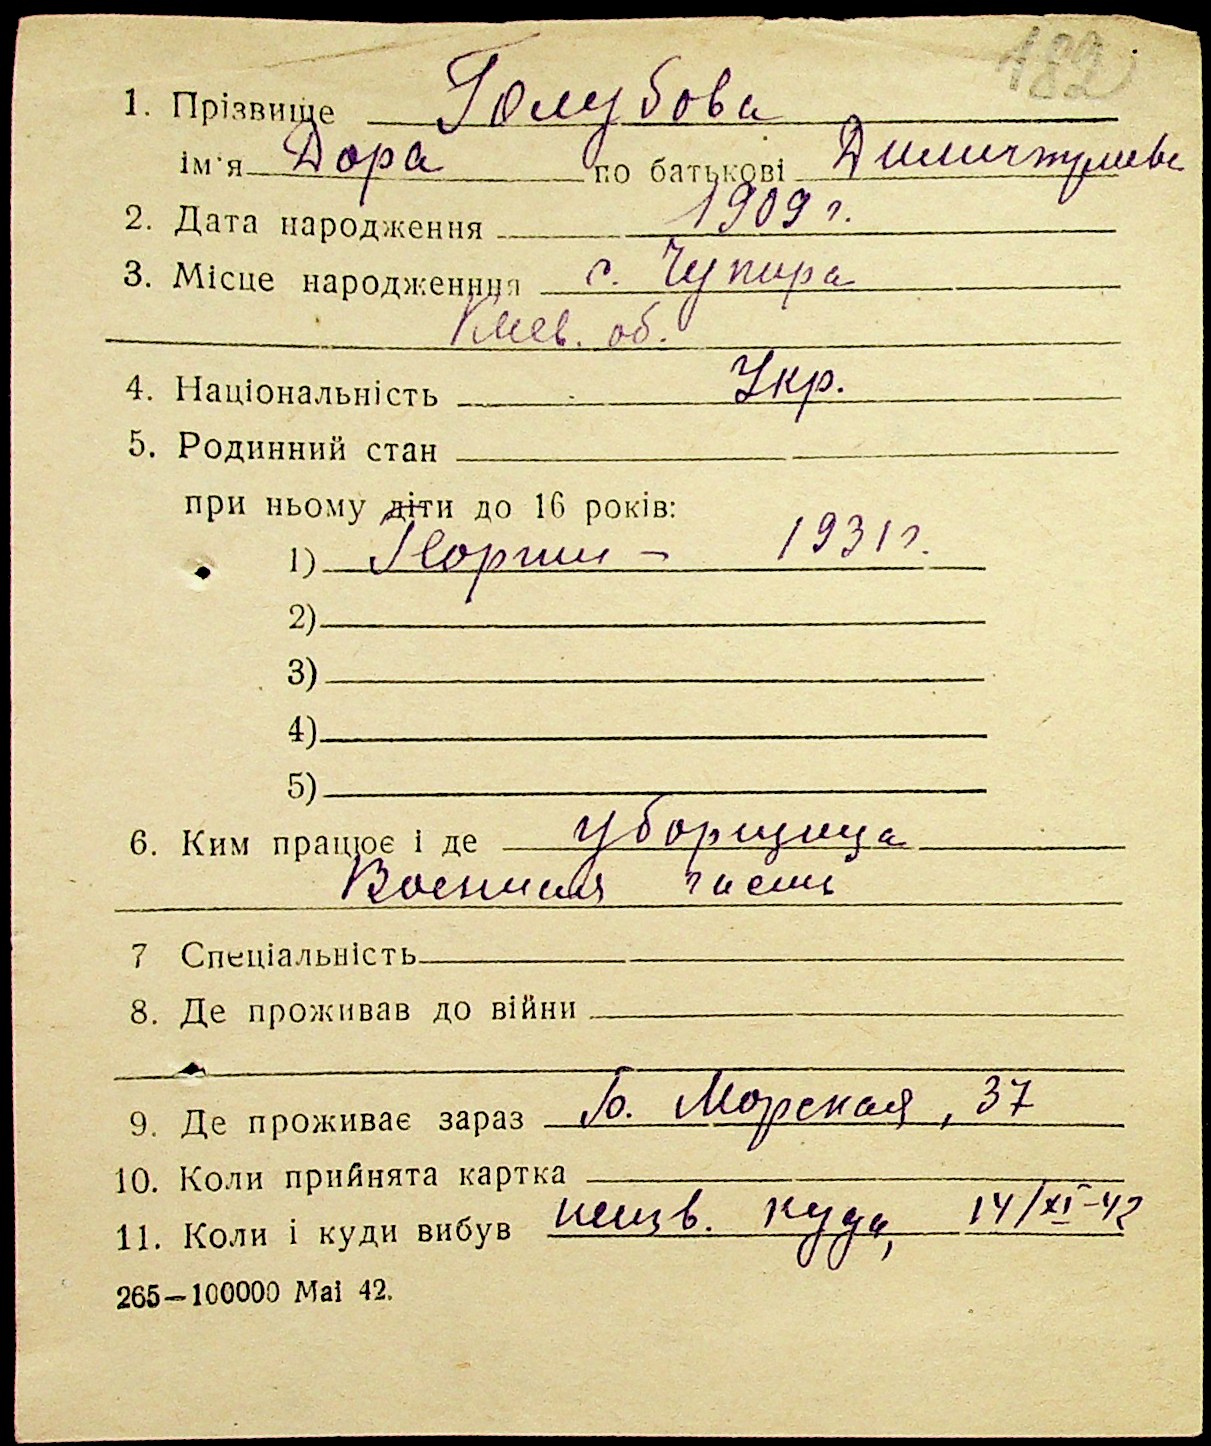 182
1. Прізвище Голубова
ім'я Дора по батькові
2. Дата народження 1909 г.
3. Місце народженння с. Чупира
Киев. об.
4. Національність Укр.
5. Родинний стан
при ньому діти до 16 років:
1) Георгий – 1931 г.
2)
3)
4)
5)
6. Ким працює і де уборщица
Военная часть
7 Спеціальність
8. Де проживав до війни
9. Де проживає зараз Б. Морская, 37
10. Коли прийнята картка
11. Коли і куди вибув неизв. куда, 14/XI-42
265—100000 Mai 42.